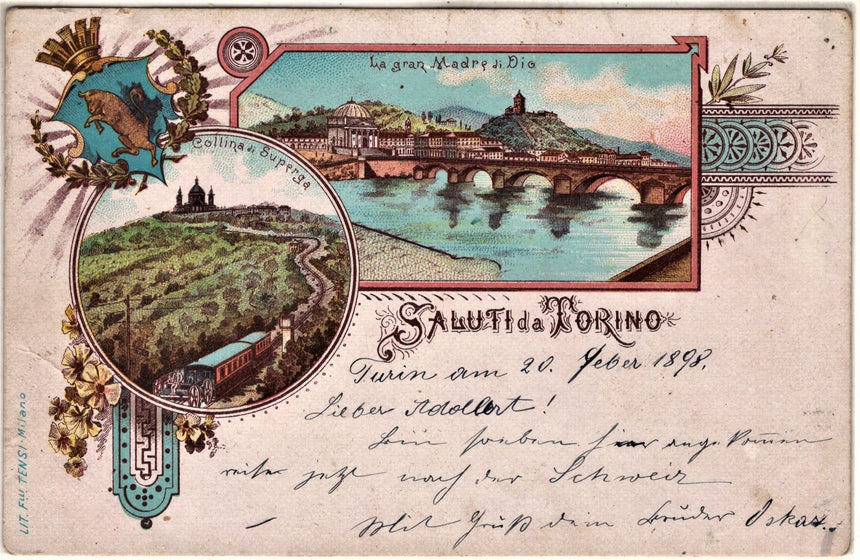 La gran Madre di Dio
Collina di Superga
SALUTI da TORINO
Turin am 20. Feber 1898.
Lieber Adolbert!
Bin soeben hier angekommen
reise jetzt nach der Schweiz
Mit Gruß dein Bruder Oskar.
LIT. F.lli TENSI - Milano